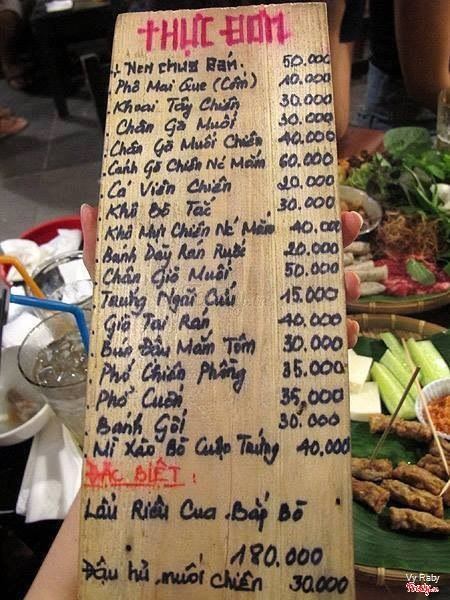 THỰC ĐƠN
+ Nem chua Rán. 50.000
Phô Mai Que (Cốn) 10.000
Khoai Tây Chiên 30.000
Chân Gà Muối 30.000
Chân Gà Muối Chiên 40.000
Cánh Gà Chiên Nc Mắm 60.000
Cá Viên Chiên 20.000
Khô Bò Tắc 30.000
Khô Mực Chiên Nc Mắm 40.000
Bánh Dầy Rán Ruốc 20.000
Chân Giò Muối 50.000
Trứng Ngải Cứu 15.000
Giò Tai Rán 40.000
Bún Đậu Mắm Tôm 30.000
Phở Chiên Phồng 35.000
Phở Cuốn 35.000
Bánh Gối 30.000
Mì Xào Bò Cuộn Trứng 40.000
ĐẶC BIỆT:
Lẩu Riêu Cua Bắp Bò
180.000
Đậu hủ muối chiên 30.000
Vy Raby